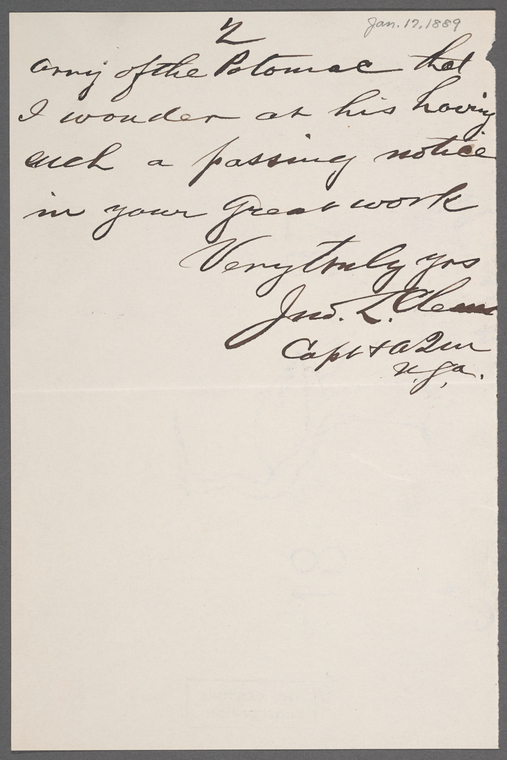 2
Jan. 17, 1889
Army of the Potomac that
I wonder at his having
such a passing notice
in your great work
Very truly yrs
Jno. L. Clem
Capt & AQM
U.S.A.